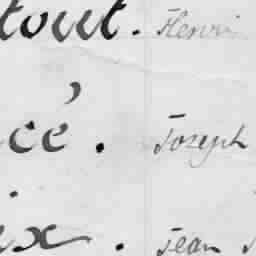 tout. Henri
cé. Joseph
ix. Jean